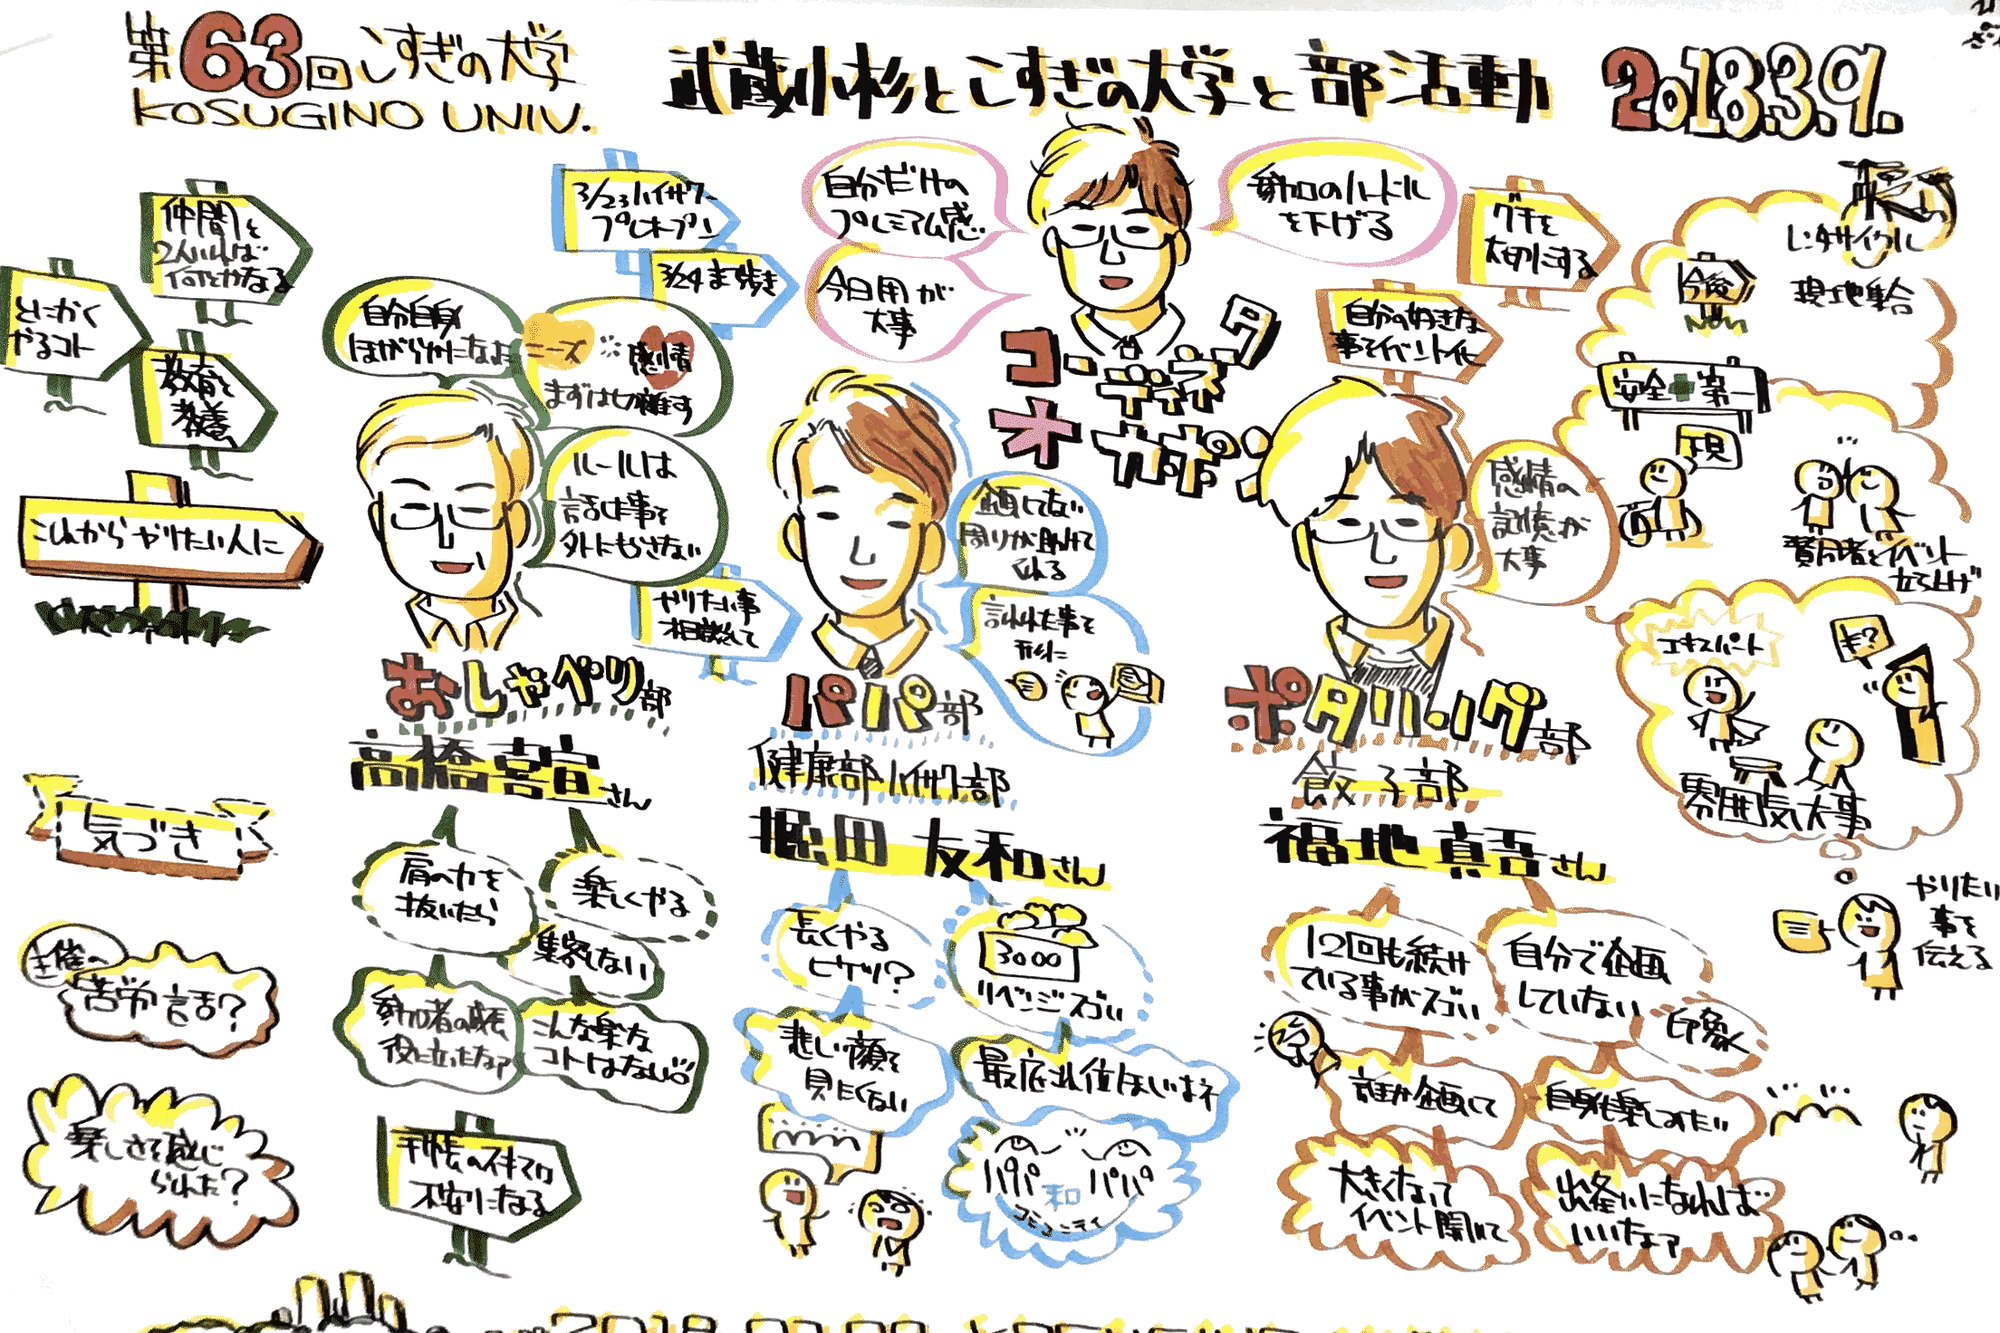 第63回こすぎの大学
KOSUGINO UNIV.
武蔵小杉とこすぎの大学と部活動
2018.3.9.
仲間を
2人いれば
何とかなる
とにかく
やるコト
教育と
教養
これからやりたい人に
3/23ハイサワー
プレオープン
3/24まち歩き
自分自身
ほがらかになよ
ニーズ
感情
まずは切り離す
ルールは
話した事を
外にもらさない
自分だけの
プレミアム感
今日用が
大事
参加のハードル
を下げる
コーディネータ
オカポン
グチを
大切にする
自分の好きな
事をイベント化
レンタサイクル
現地集合
今後
安全✚第一
現
賛同者とイベント
立ち上げ
企画してない
周りが助けて
くれる
言われた事を
形に
やりたい事
相談して
感情の
記憶が
大事
エキスパート
¥?
雰囲気大事
やりたい
事を
伝える
おしゃべり部
高橋喜宣さん
パパ部
健康部 ハイサワー部
堀田 友和さん
ポタリング部
餃子部
福地 真吾さん
気づき
肩の力を
抜いたら
楽しくやる
集客しない
参加者の成長
役に立ったなァ
こんな楽な
コトはない
手帳のスキマで
不安になる
主催の
苦労話?
楽しさを感じ
られた?
長くやる
ヒケツ?
3000
リベンジスゴい
悲しい顔を
見たくない
最底3位ほしいよネ
パパ 和 パパ
コミュニティ
12回も続け
ている事がスゴい
自分で企画
していない
印象く
誰か企画して
自身も楽しみたい
大きくなって
イベント開いて
出逢いになれば
いいなァ